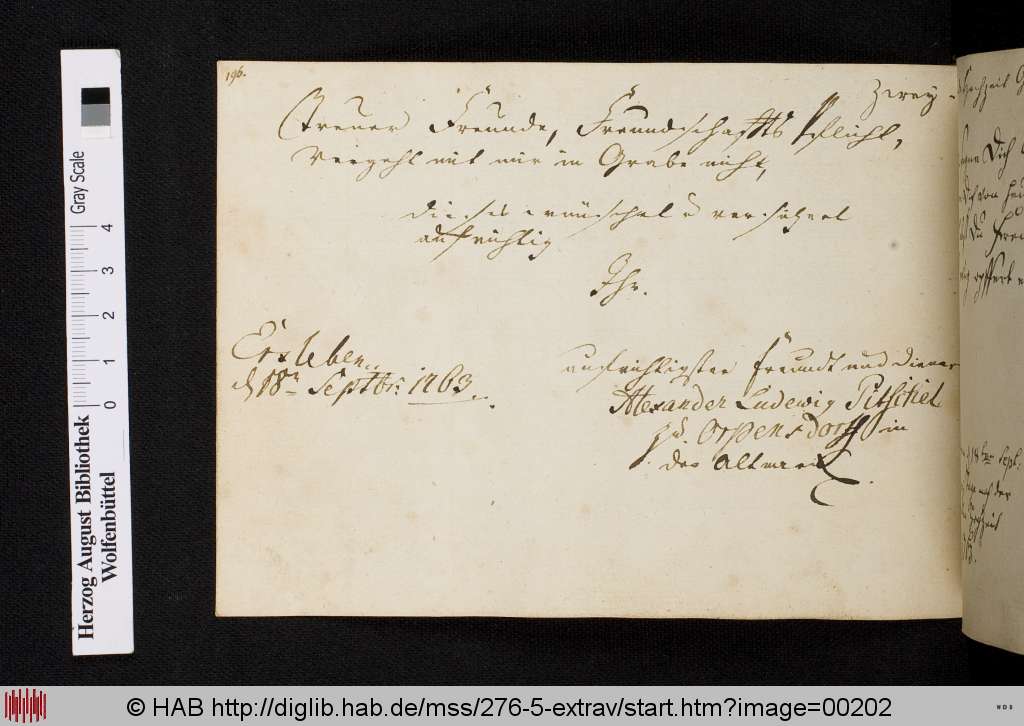 196.
Zwey-
Treuer Freunde, Freundschaffts Pflicht,
Vergeht mit mir im Grabe nicht,
dieses wünschet u versichert
aufrichtig
Ihr.
Erxleben,
d 18 Septbr: 1763.
aufrichtigster Freundt und Diener
Alexander Ludewig Pitschel
in
der Altmark
Herzog August Bibliothek
Wolfenbüttel
Gray Scale
0 1 2 3 4
Dich
von
Du
der
© HAB http://diglib.hab.de/mss/276-5-extrav/start.htm?image=00202